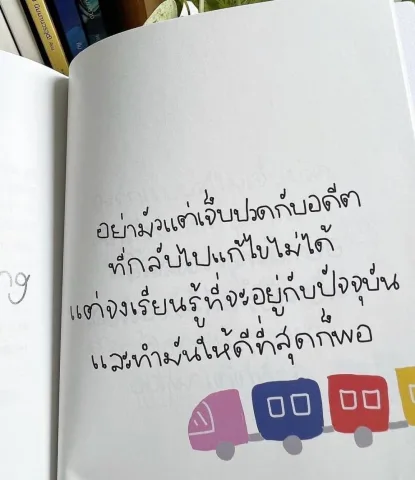 ng
อย่ามัวแต่เจ็บปวดกับอดีต
ที่กลับไปแก้ไขไม่ได้
แต่จงเรียนรู้ที่จะอยู่กับปัจจุบัน
และทำมันให้ดีที่สุดก็พอ